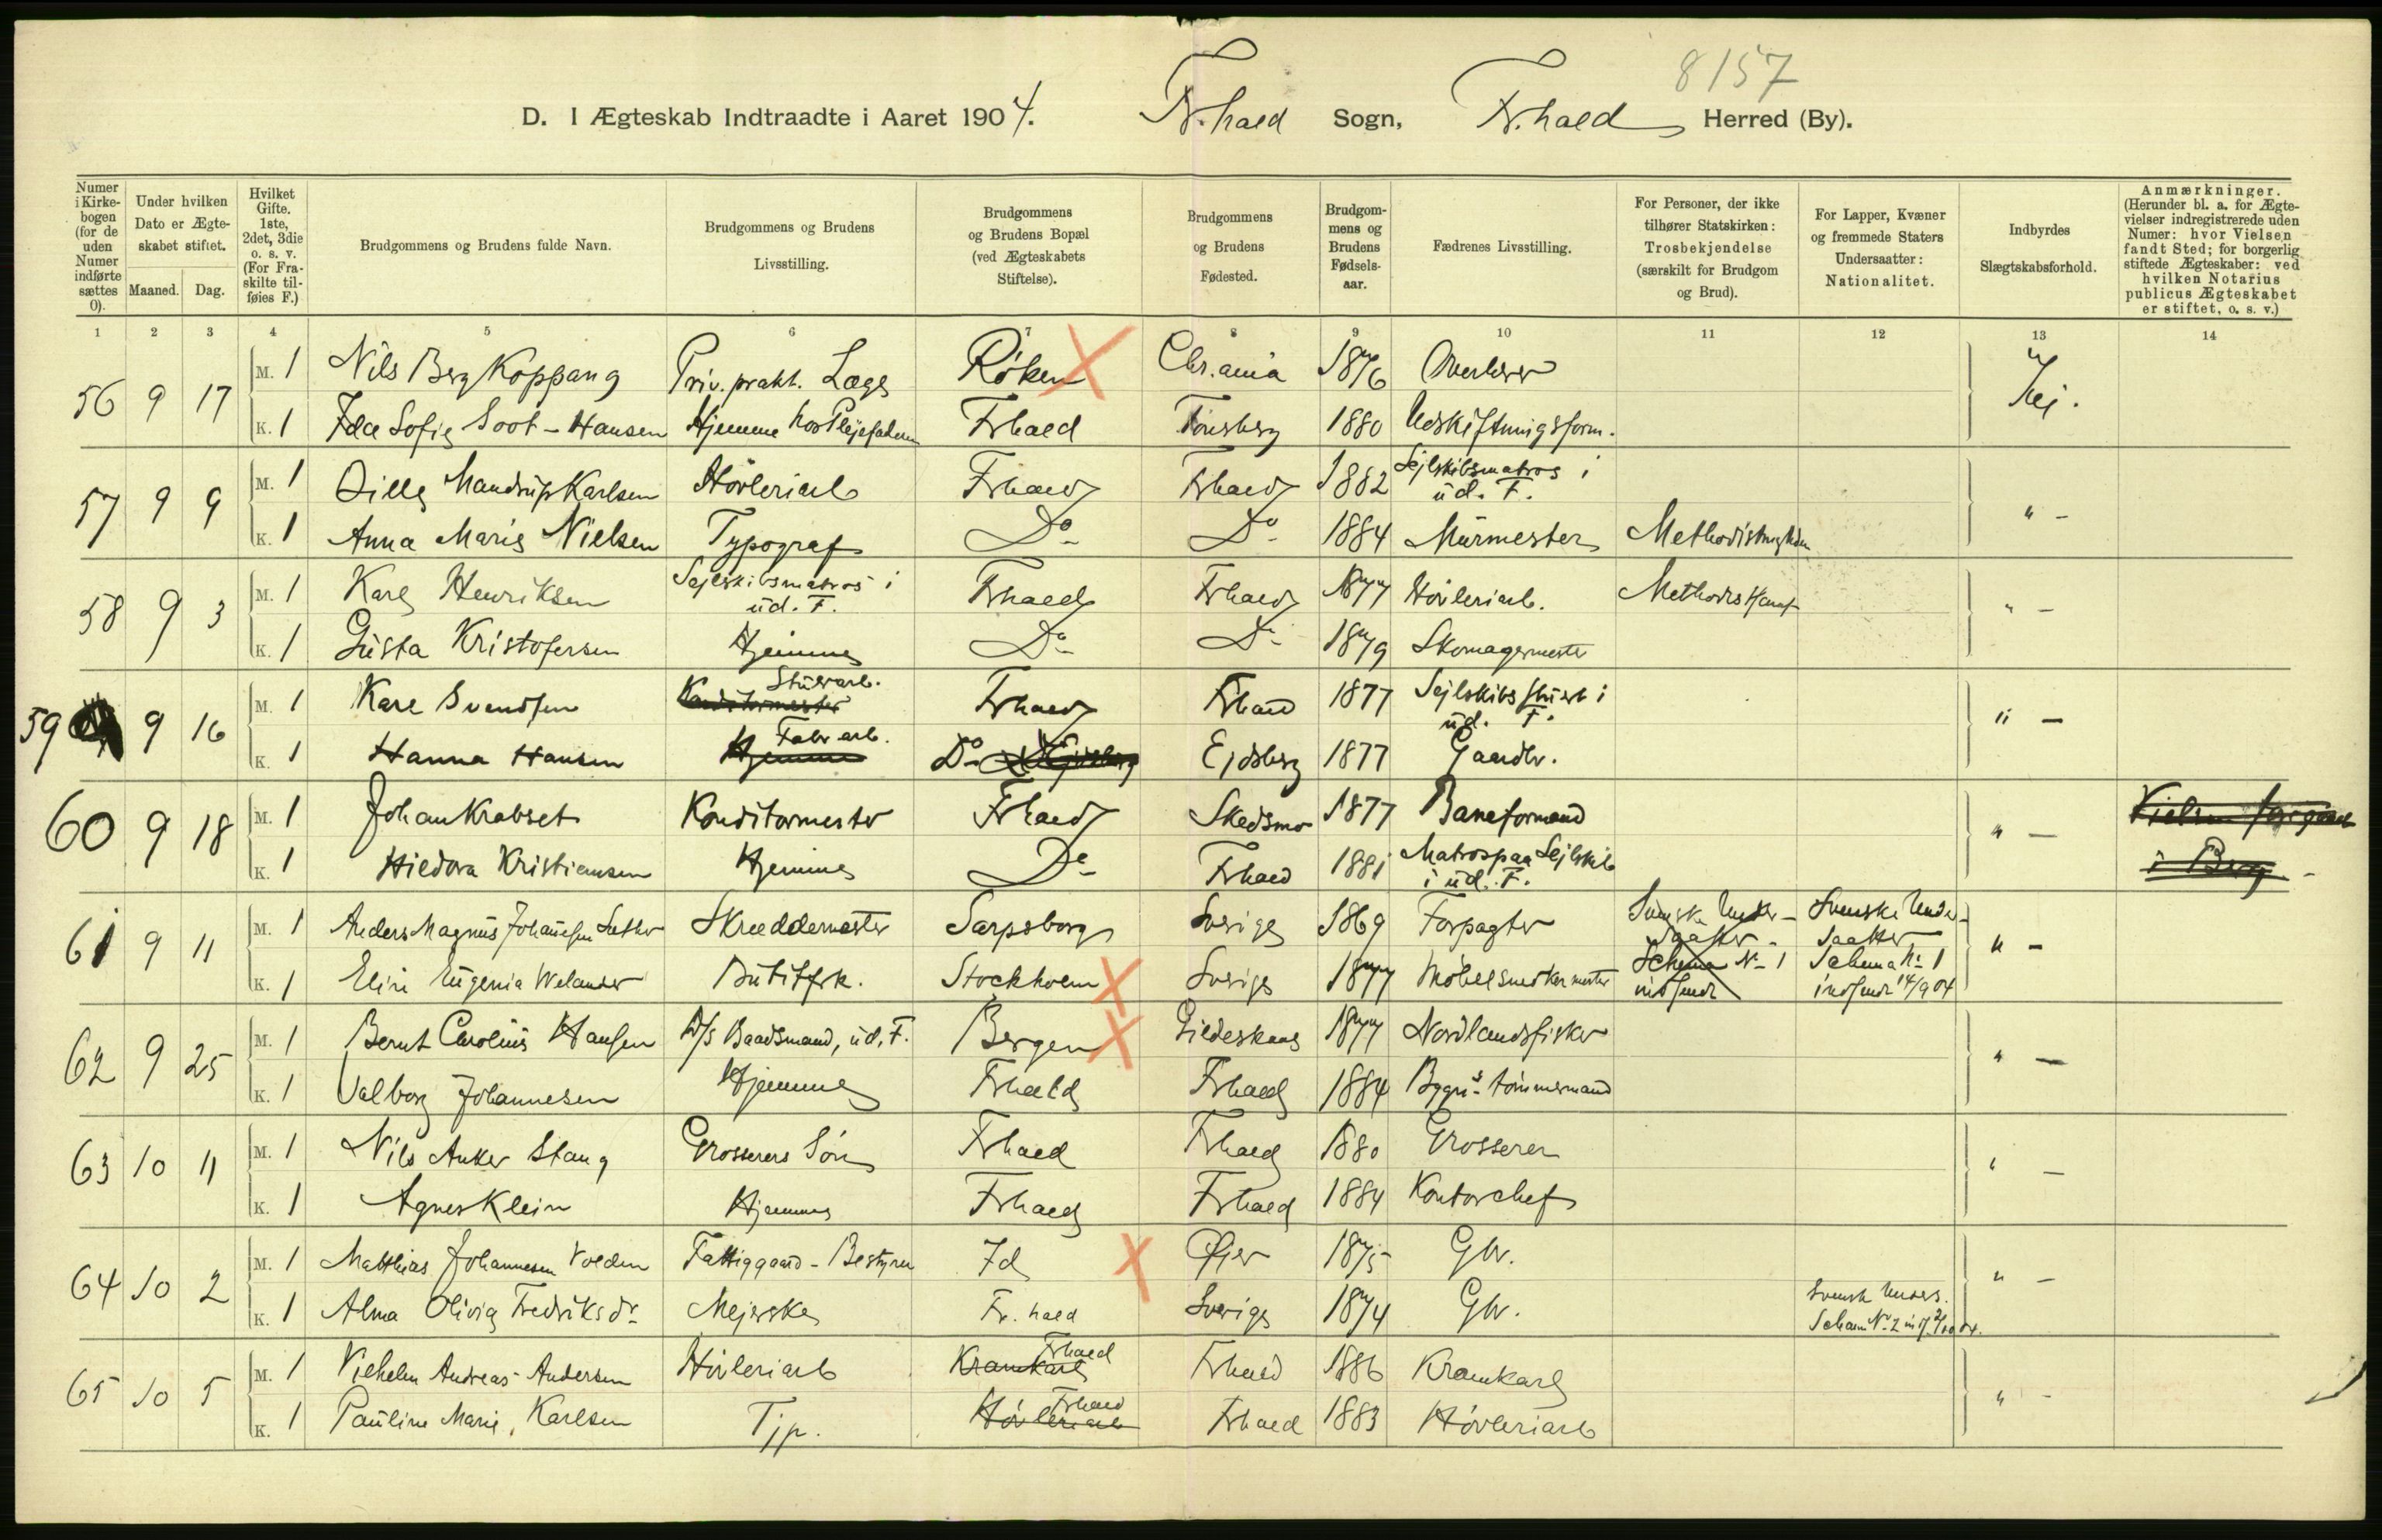 8157
D. I Ægteskab Indtraadte i Aaret 1904. Fr.hald Sogn, Fr.hald Herred (By).
Numer i Kirkebogen (for de uden Numer indførte sættes 0).
Under hvilken Dato er Ægteskabet stiftet.
Maaned. Dag.
Hvilket Gifte. 1ste, 2det, 3die o. s. v. (For Fraskilte tilføies F.)
Brudgommens og Brudens fulde Navn.
Brudgommens og Brudens Livsstilling.
Brudgommens og Brudens Bopæl (ved Ægteskabets Stiftelse).
Brudgommens og Brudens Fødested.
Brudgommens og Brudens Fødselsaar.
Fædrenes Livsstilling.
For Personer, der ikke tilhører Statskirken: Trosbekjendelse (særskilt for Brudgom og Brud).
For Lapper, Kvæner og fremmede Staters Undersaatter: Nationalitet.
Indbyrdes Slægtskabsforhold.
Anmærkninger. (Herunder bl. a. for Ægtevielser indregistrerede uden Numer: hvor Vielsen fandt Sted; for borgerlig stiftede Ægteskaber: ved hvilken Notarius publicus Ægteskabet er stiftet, o. s. v.)
1 2 3 4 5 6 7 8 9 10 11 12 13 14
56 9 17 M. 1 Nils Berg Koppang Priv. prakt. Læge Røken Chr.ania 1876 Overlærer Nei.
K. 1 Ida Sofie Soot-Hansen Hjemme hos Plejefaderen Frhald Tønsberg 1880 Udskiftningsform.
57 9 9 M. 1 Mandrup Karlsen Høvleriarb Frhald Frhald 1882 Sejlskibsmatros i ud. F. " -
K. 1 Anna Marie Nielsen Typograf Do Do 1884 Murmester
58 9 3 M. 1 Karl Henriksen Sejlskibsmatros i ud. F. Frhald Frhald 1877 Høvleriarb. " -
K. 1 Gusta Kristofersen Hjemme Do Do 1879 Skomagermester
59 9 16 M. 1 Karl Svendsen Konditormester Stuerarb. Frhald Frhald 1877 Sejlskibs i ud. F. " -
K. 1 Hanna Hansen Hjemme Fabr arb. Do Ejdsberg 1877 Gaardbr.
60 9 18 M. 1 Johan Krabset Konditormester Frhald Skedsmo 1877 Baneformand " - Vielsen foregaaet i Berg
K. 1 Hildora Kristiansen Hjemme Do Frhald 1881 Matros paa Sejlskib i ud. F.
61 9 11 M. 1 Anders Magnus Johansen Skræddermester Sarpsborg Sverige 1869 Forpagter Svenske Undersaatter. Schema No 1 indsendt Svenske Undersaatter Schema No 1 indsendt 14/9 04 " -
K. 1 Elin Eugenia Welander Butikfrk. Stockholm Sverige 1877 Møbelsnedkermester
62 9 25 M. 1 Bernt Carolius Hansen D/S Baadsmand, ud. F. Bergen Gildeskaal 1877 Nordlandsfisker " -
K. 1 Valborg Johannesen Hjemme Frhald Frhald 1884 Bygn.s tømmermand
63 10 11 M. 1 Nils Anker Stang Grosserers Søn Frhald Frhald 1880 Grosserer " -
K. 1 Agnes Klein Hjemme Frhald Frhald 1884 Kontorchef
64 10 2 M. 1 Matthias Johannesen Volden Fattiggaard-Bestyrer Id Øier 1875 Gbr. " -
K. 1 Alma Olivia Fredriksdr Mejerske Fr.hald Sverige 1874 Gbr. Svensk Unders. Schema No 2
65 10 5 M. 1 Vilhelm Andreas Andersen Høvleriarb Krankarl Frhald Frhald 1886 Krankarl " -
K. 1 Pauline Marie, Karlsen Tjp. Høvleriarb Frhald Frhald 1883 Høvleriarb